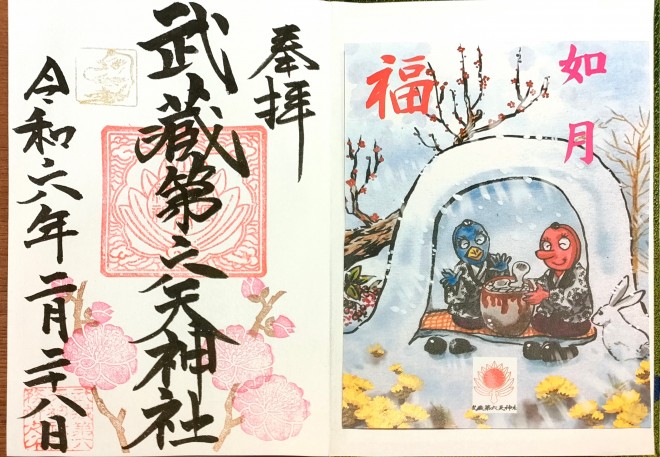 奉拝
武蔵第六天神社
令和六年二月二十八日
如月
福
武蔵第六天神社